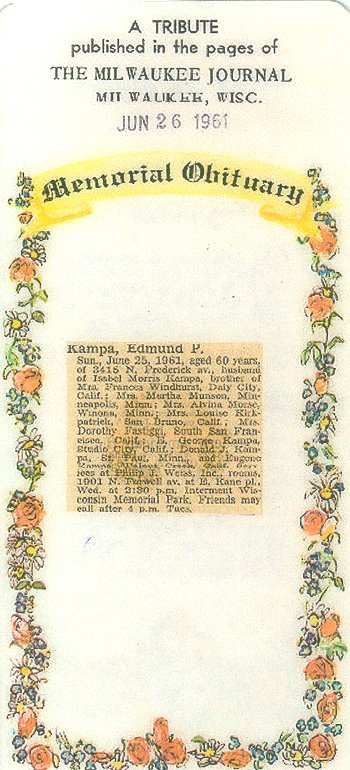 A TRIBUTE
published in the pages of
THE MILWAUKEE JOURNAL
MILWAUKEE, WISC.
JUN 26 1961
Memorial Obituary
Kampa, Edmund P.
Sun., June 25, 1961, aged 60 years,
of 3415 N. Frederick av., husband
of Isabel Morris Kampa, brother of
Mrs. Frances Windhurst, Daly City,
Calif.; Mrs. Martha Munson, Min-
neapolis, Minn.; Mrs. Alvina Morse,
Winona, Minn.; Mrs. Louise Kirk-
patrick, San Bruno, Calif.; Mrs.
Dorothy Fastigi, South San Fran-
cisco, Calif.; E. George Kampa,
Studio City, Calif.; Donald J. Kam-
pa, St. Paul, Minn., and Eugene
Kampa, Walnut Creek, Calif. Serv-
ices at Philip J. Weiss, Inc., rooms,
1901 N. Farwell av. at E. Kane pl.,
Wed. at 2:30 p.m. Interment Wis-
consin Memorial Park. Friends may
call after 4 p.m. Tues.